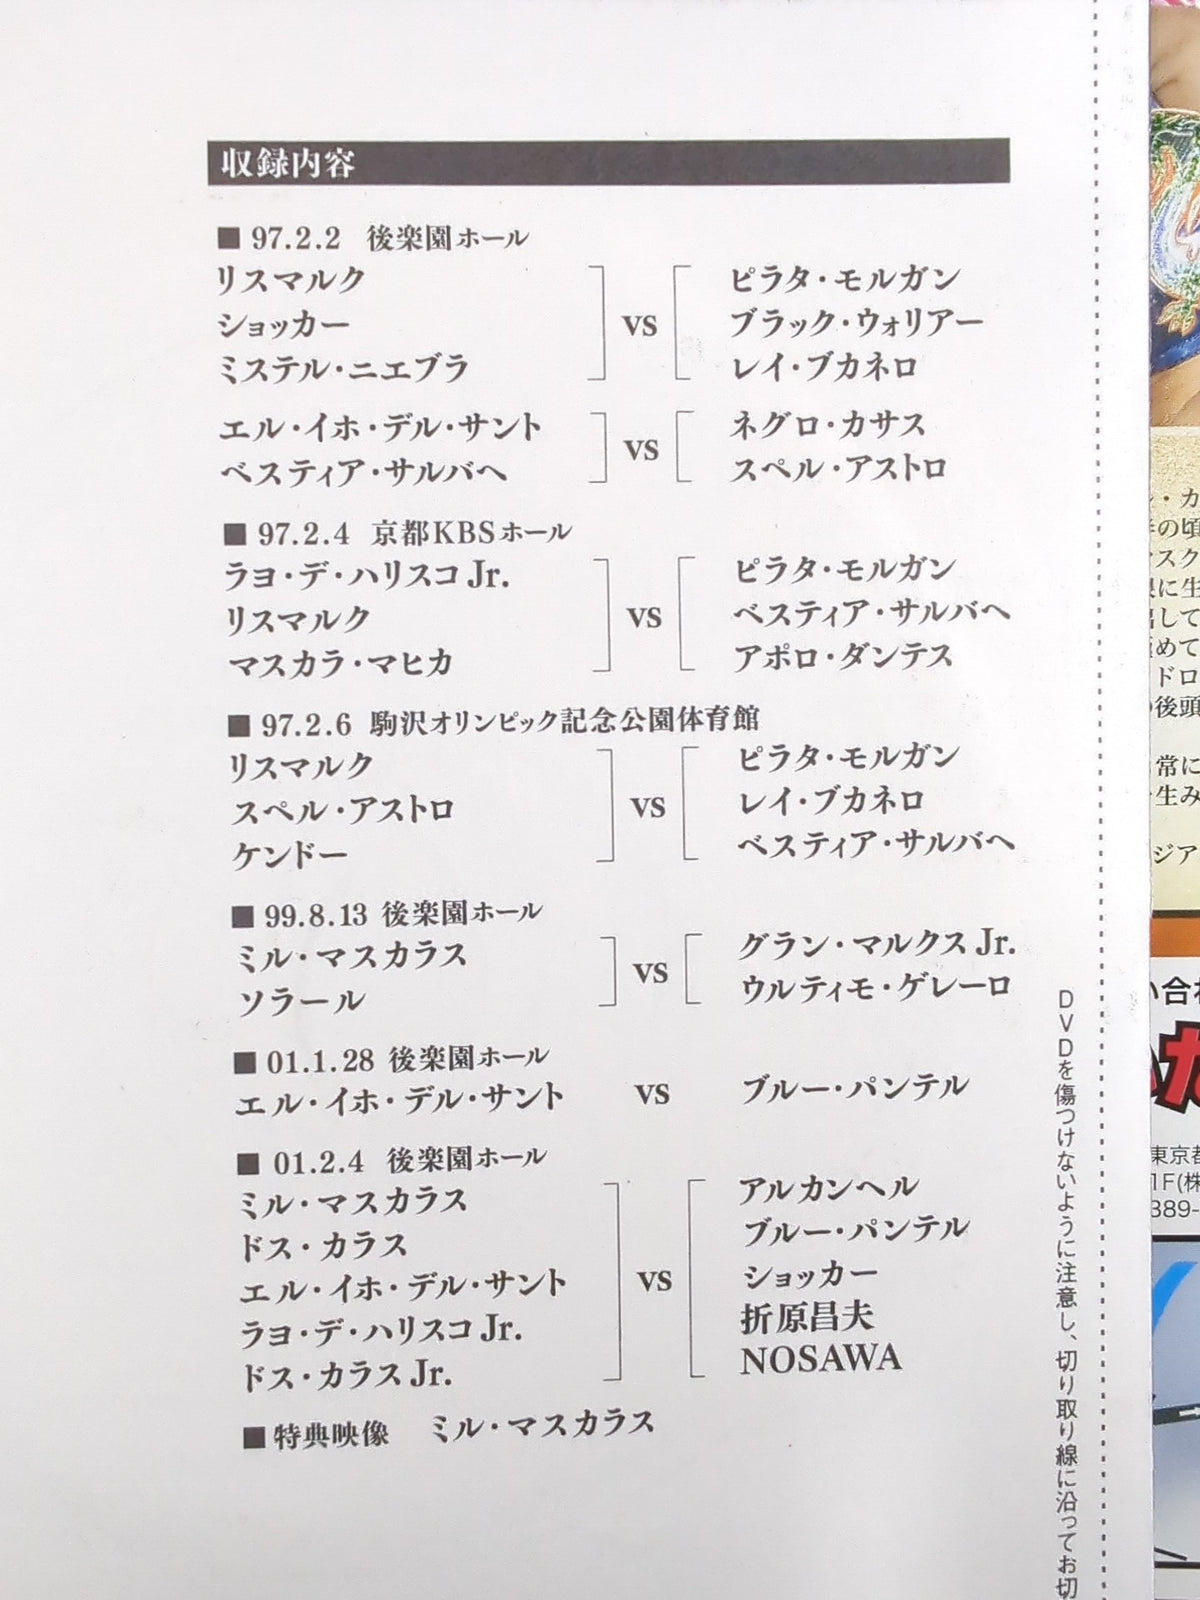 収録内容
■ 97.2.2 後楽園ホール
リスマルク
ショッカー
ミステル・ニエブラ
vs
ピラタ・モルガン
ブラック・ウォリアー
レイ・ブカネロ
エル・イホ・デル・サント
ベスティア・サルバヘ
vs
ネグロ・カサス
スペル・アストロ
■ 97.2.4 京都KBSホール
ラヨ・デ・ハリスコJr.
リスマルク
マスカラ・マヒカ
vs
ピラタ・モルガン
ベスティア・サルバヘ
アポロ・ダンテス
■ 97.2.6 駒沢オリンピック記念公園体育館
リスマルク
スペル・アストロ
ケンドー
vs
ピラタ・モルガン
レイ・ブカネロ
ベスティア・サルバヘ
■ 99.8.13 後楽園ホール
ミル・マスカラス
ソラール
vs
グラン・マルクスJr.
ウルティモ・ゲレーロ
■ 01.1.28 後楽園ホール
エル・イホ・デル・サント
vs
ブルー・パンテル
■ 01.2.4 後楽園ホール
ミル・マスカラス
ドス・カラス
エル・イホ・デル・サント
ラヨ・デ・ハリスコJr.
ドス・カラスJr.
vs
アルカンヘル
ブルー・パンテル
ショッカー
折原昌夫
NOSAWA
■特典映像 ミル・マスカラス
DVDを傷つけないように注意し、切り取り線に沿ってお切
・カ
の頃
スク
に生
して
めて
ドロ
後頭
常に
生み
ジア
い合わ
た
東京都
1F(株
389-